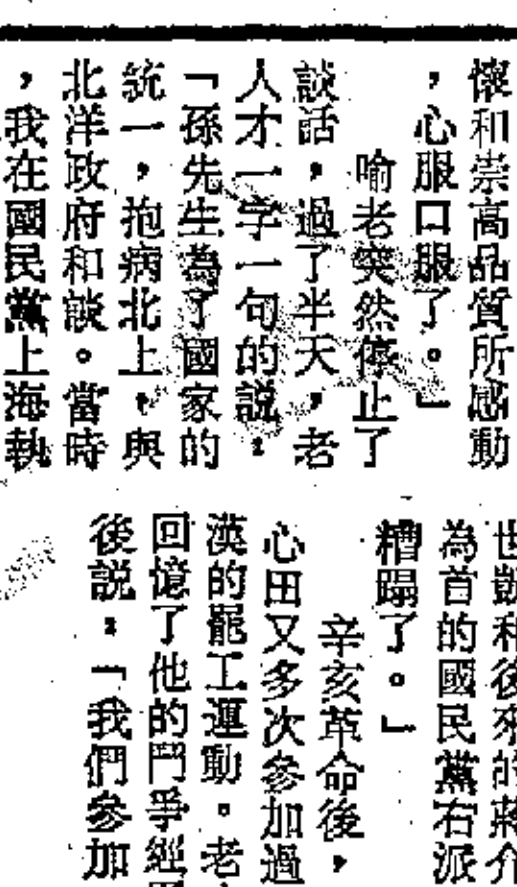 懷和崇高品質所感動
，心服口服了。」
喻老突然停止了
談話，過了半天，老
人才一字一句的説：
「孫先生為了國家的
統一，抱病北上，與
北洋政府和談。當時
，我在國民黨上海執
世凱和後來的蔣介
為首的國民黨右派
糟蹋了。」
辛亥革命後，
心田又多次參加過
漢的罷工運動。老
回憶了他的鬥爭經
後説：「我們參加